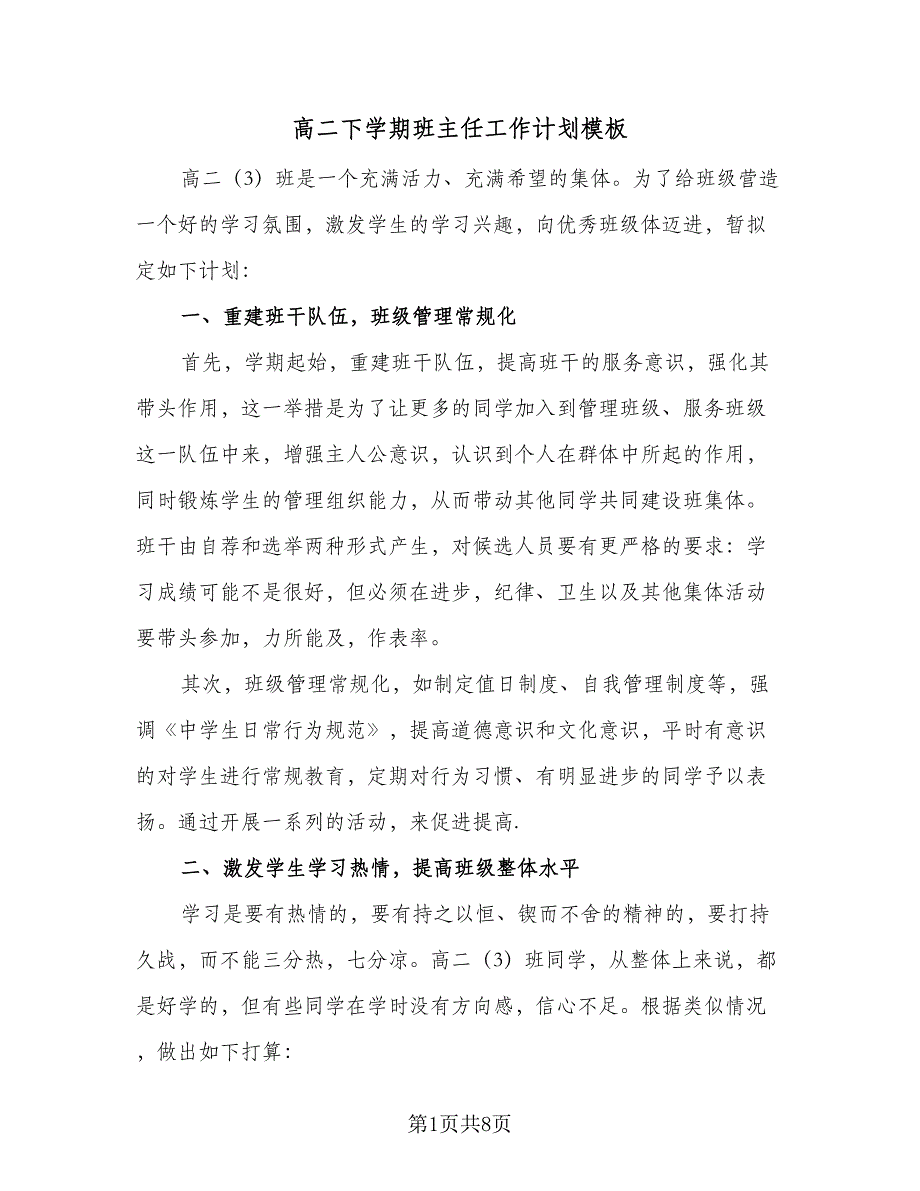 高二下学期班主任工作计划模板
高二（3）班是一个充满活力、充满希望的集体。为了给班级营造
一个好的学习氛围，激发学生的学习兴趣，向优秀班级体迈进，暂拟
定如下计划：
一、重建班干队伍，班级管理常规化
首先，学期起始，重建班干队伍，提高班干的服务意识，强化其
带头作用，这一举措是为了让更多的同学加入到管理班级、服务班级
这一队伍中来，增强主人公意识，认识到个人在群体中所起的作用，
同时锻炼学生的管理组织能力，从而带动其他同学共同建设班集体。
班干由自荐和选举两种形式产生，对候选人员要有更严格的要求：学
习成绩可能不是很好，但必须在进步，纪律、卫生以及其他集体活动
要带头参加，力所能及，作表率。
其次，班级管理常规化，如制定值日制度、自我管理制度等，强
调《中学生日常行为规范》，提高道德意识和文化意识，平时有意识
的对学生进行常规教育，定期对行为习惯、有明显进步的同学予以表
扬。通过开展一系列的活动，来促进提高.
二、激发学生学习热情，提高班级整体水平
学习是要有热情的，要有持之以恒、锲而不舍的精神的，要打持
久战，而不能三分热，七分凉。高二（3）班同学，从整体上来说，都
是好学的，但有些同学在学时没有方向感，信心不足。根据类似情况
，做出如下打算：
第1页共8页